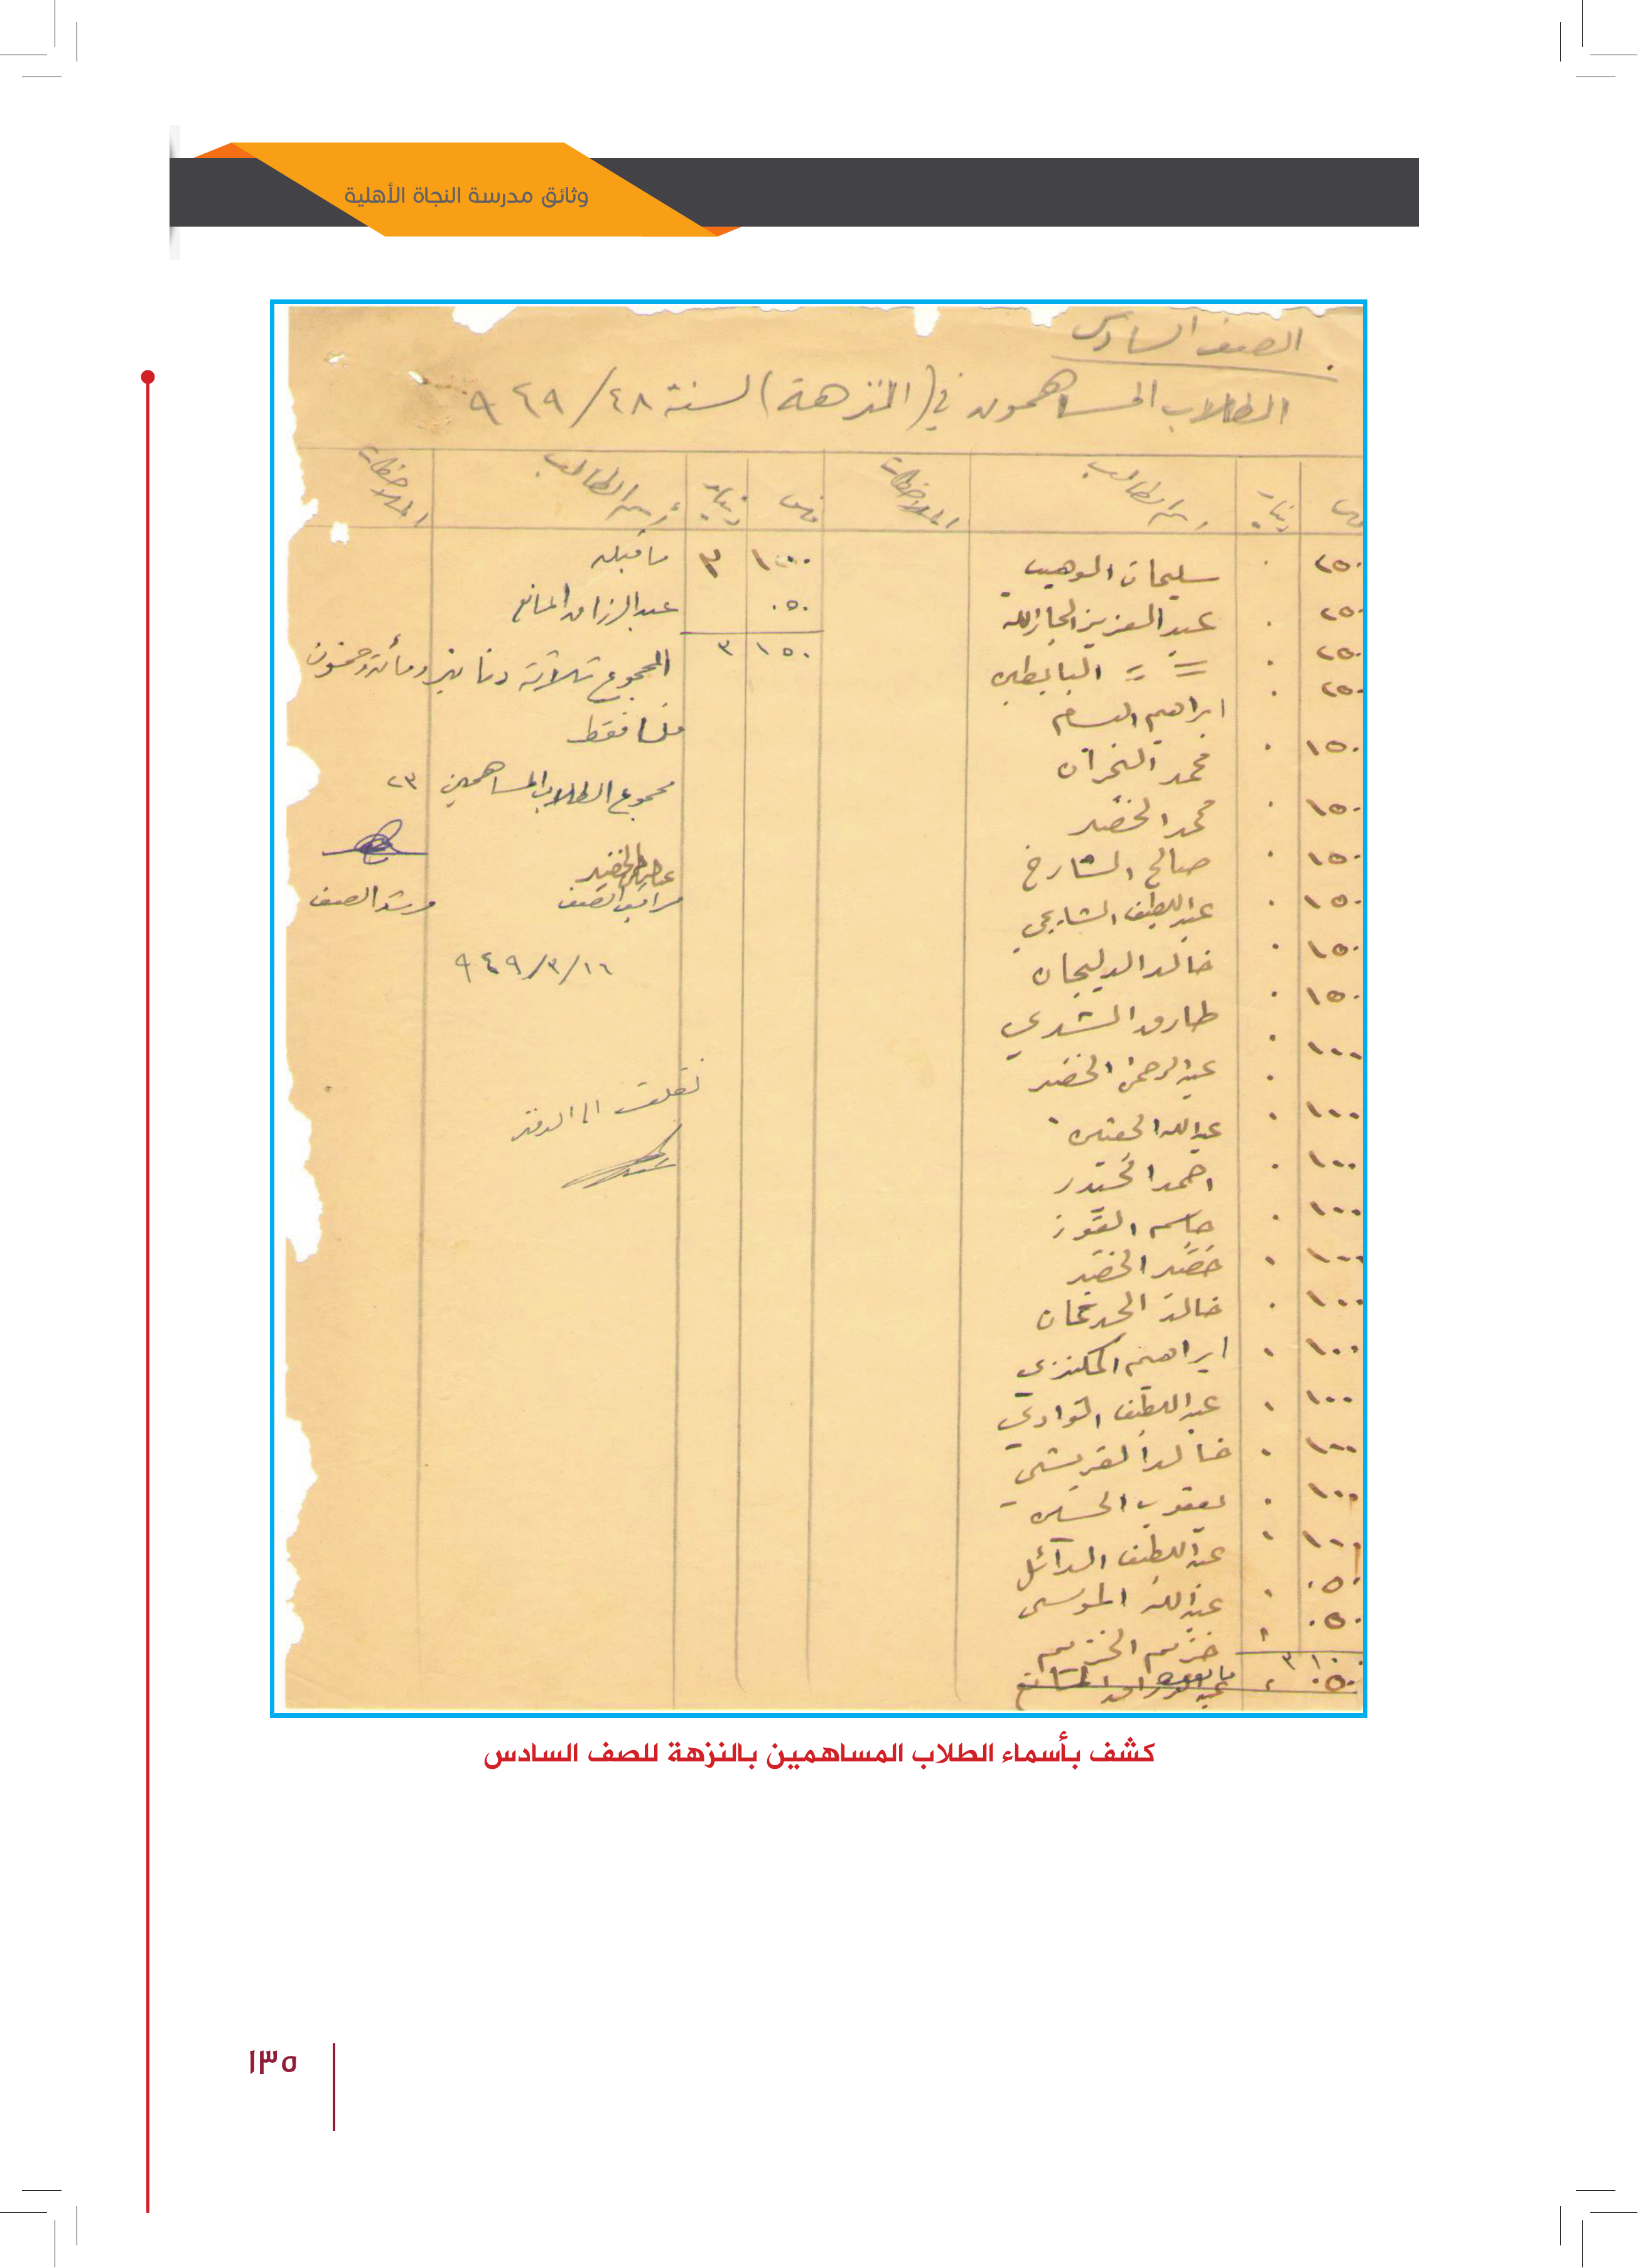 وثائق مدرسة النجاة الأهلية
الصف السادس
الطلاب المساهمون في (النزهة) لسنة ٤٨/٩٤٩
فلس دينار اسم الطالب الملاحظات فلس دينار اسم الطالب الملاحظات
٢٥٠ ٠ سليمان الوهيب
٢٥٠ ٠ عبد العزيز الجارالله
٢٥٠ ٠ = = البابطين
٢٥٠ ٠ ابراهيم البسام
١٥٠ ٠ محمد
١٥٠ ٠ محمد الخضير
١٥٠ ٠ صالح الشارخ
١٥٠ ٠ عبد اللطيف الشايجي
١٥٠ ٠ خالد الدليجان
١٥٠ ٠ طارق الشدي
١٠٠ ٠ عبد الرحمن الخضير
١٠٠ ٠ عبد الله
١٠٠ ٠ احمد
١٠٠ ٠ جاسم الفوز
١٠٠ ٠ خضير الخضير
١٠٠ ٠ خالد
١٠٠ ٠ ابراهيم المكنزي
١٠٠ ٠ عبد اللطيف
١٠٠ ٠ خالد القريشي
١٠٠ ٠ يعقوب
١٠٠ ٠ عبد اللطيف الدائل
٠٥٠ ٠ عبد الله الموسى
٠٥٠ ٠ خزيم الخزيم
٣ ١٠٠
٠٥٠ عبد الرزاق المانع
١٠٠ ٣ ما قبله
٠٥٠ عبد الرزاق المانع
١٥٠ ٣
المجموع ثلاثة دنانير ومائة وخمسون
فلسا فقط
مجموع الطلاب المساهمين ٢٣
مراقب الصف مرشد الصف
١٦/٣/٩٤٩
نقلت الى الدفتر
كشف بأسماء الطلاب المساهمين بالنزهة للصف السادس
١٣٥